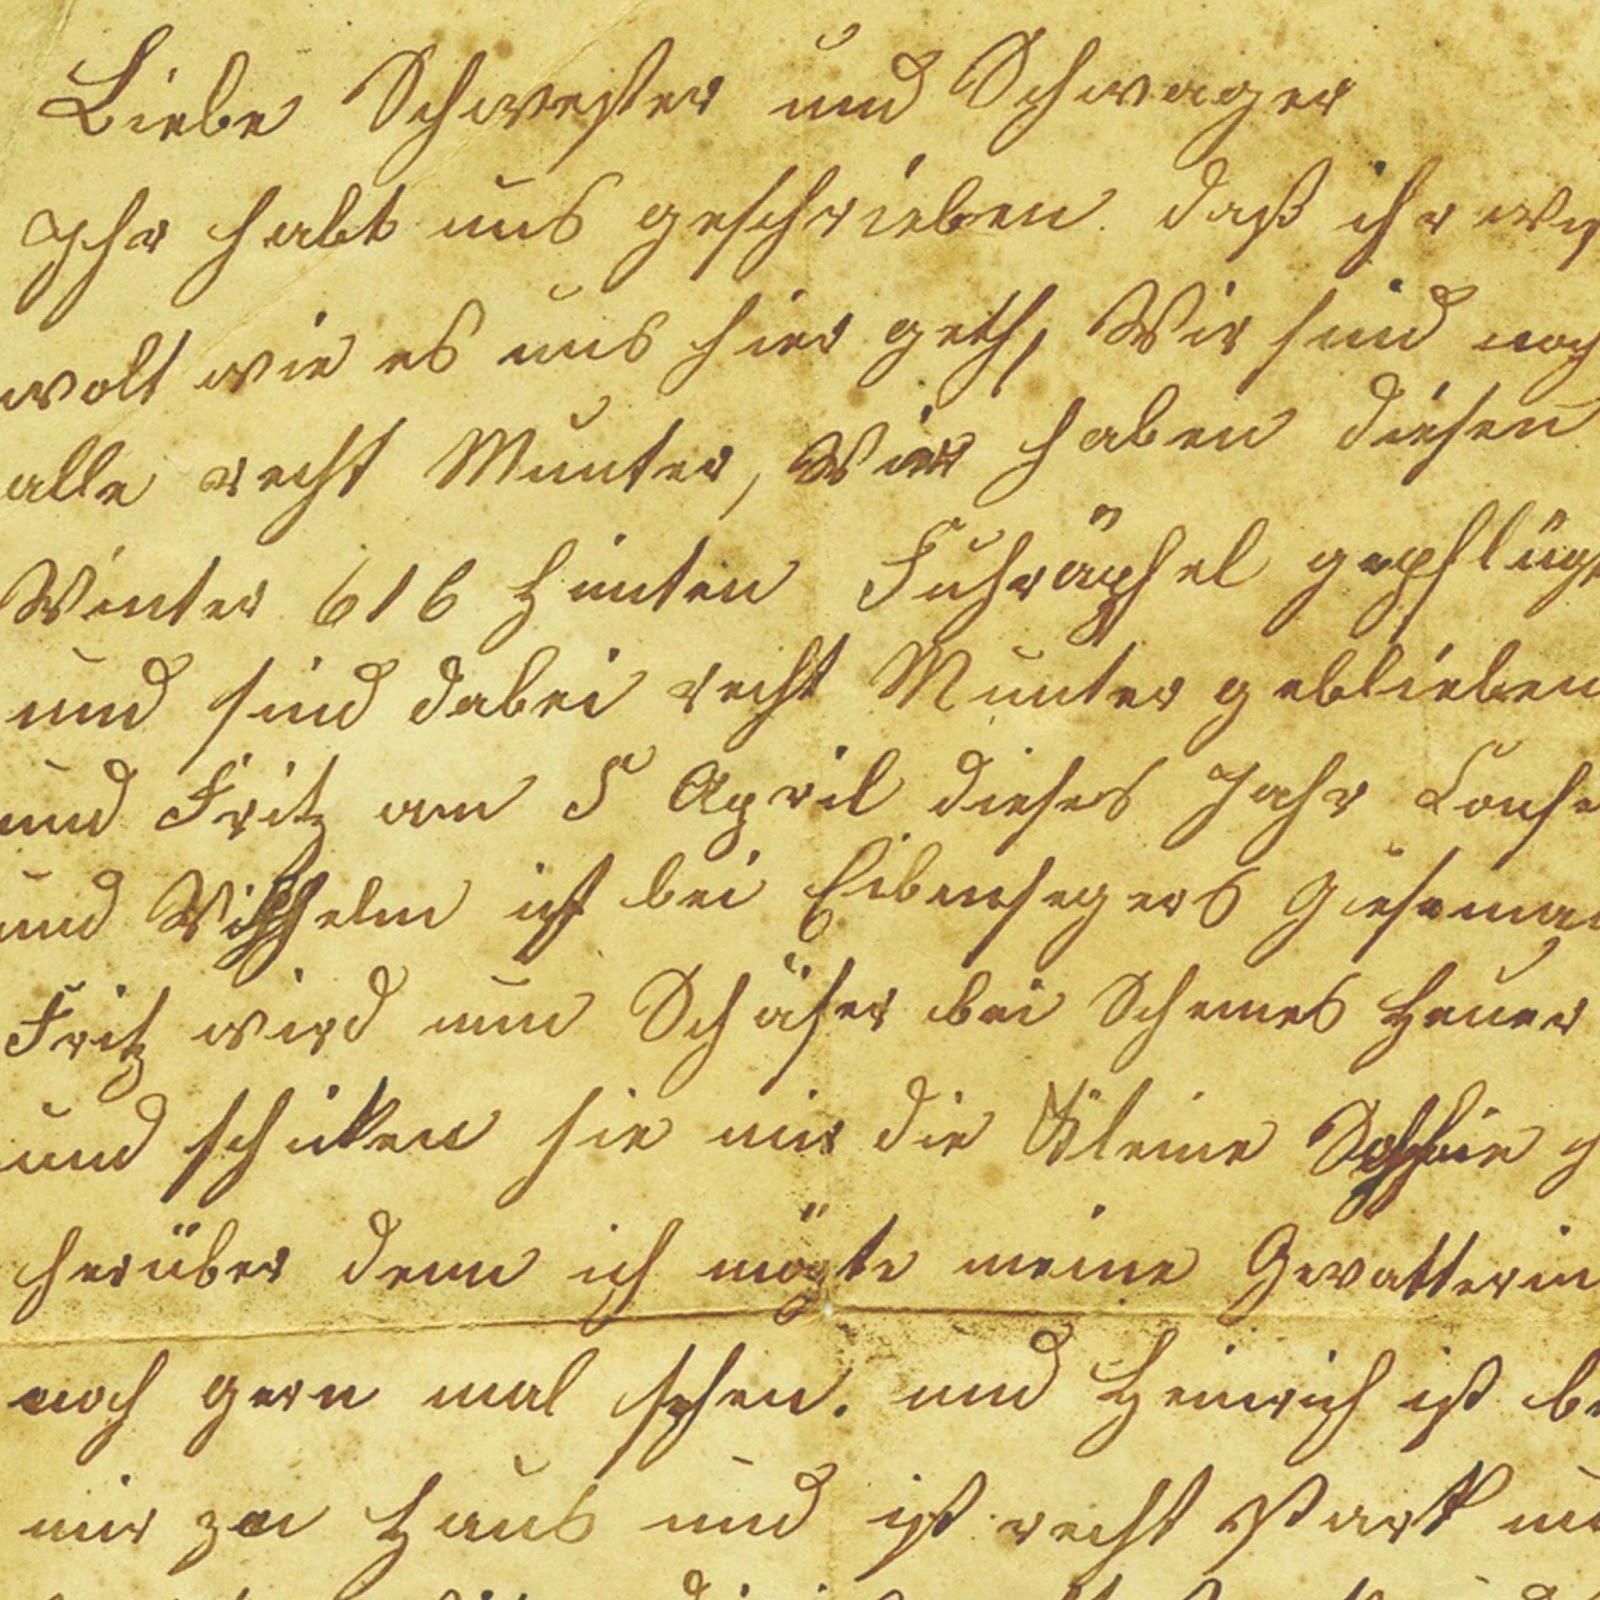 Liebe Schwester und Schwager
Ihr habt uns geschrieben. daß ihr
wolt wie es uns hier geth, Wir sind noch
alle recht Munter, Wier haben diesen
Winter 616 Himten Fuhräpfel gepflügt
und sind dabei recht Munter geblieben
und Fritz am 5 April dieses Jahr
und Wilhelm ist bei
Fritz wird nun Schäfer bei Heuer
und schicken sie mir die Kleine Sophie
herüber denn ich mögte meine Gevatterin
noch gern mal sehen. und Heinrich ist
mir zu Haus und ist recht Stark